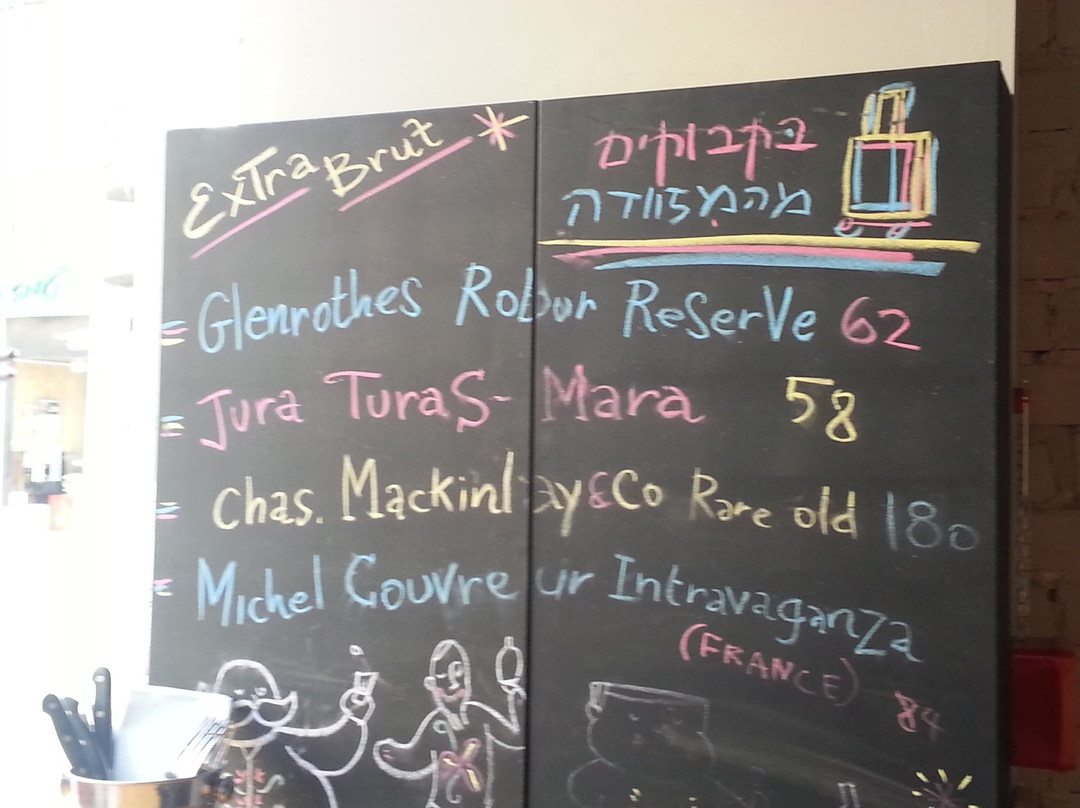 Extra Brut
בקבוקים
מהמזוודה
Glenrothes Robur Reserve 62
Jura Turas-Mara 58
Chas. Mackinlay & Co Rare old 180
Michel Couvreur Intravaganza
(FRANCE)
84